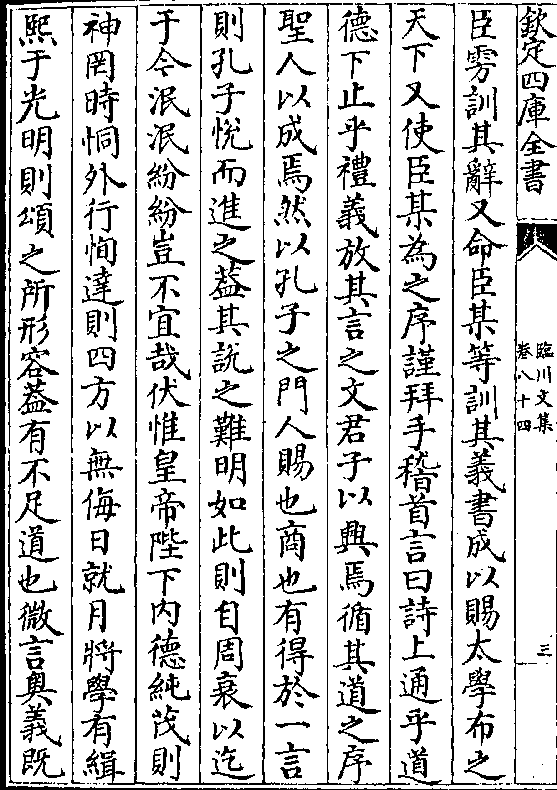 欽定四庫全書
臨川文集
卷八十四
三
臣雱訓其辭又命臣某等訓其義書成以賜太學布之
天下又使臣某為之序謹拜手稽首言曰詩上通乎道
德下止乎禮義放其言之文君子以興焉循其道之序
聖人以成焉然以孔子之門人賜也商也有得於一言
則孔子悅而進之葢其説之難明如此則自周衰以迄
于今泯泯紛紛豈不宜哉伏惟皇帝陛下内德純茂則
神罔時恫外行恂達則四方以無侮日就月將學有緝
熙于光明則頌之所形容葢有不足道也微言奥義既